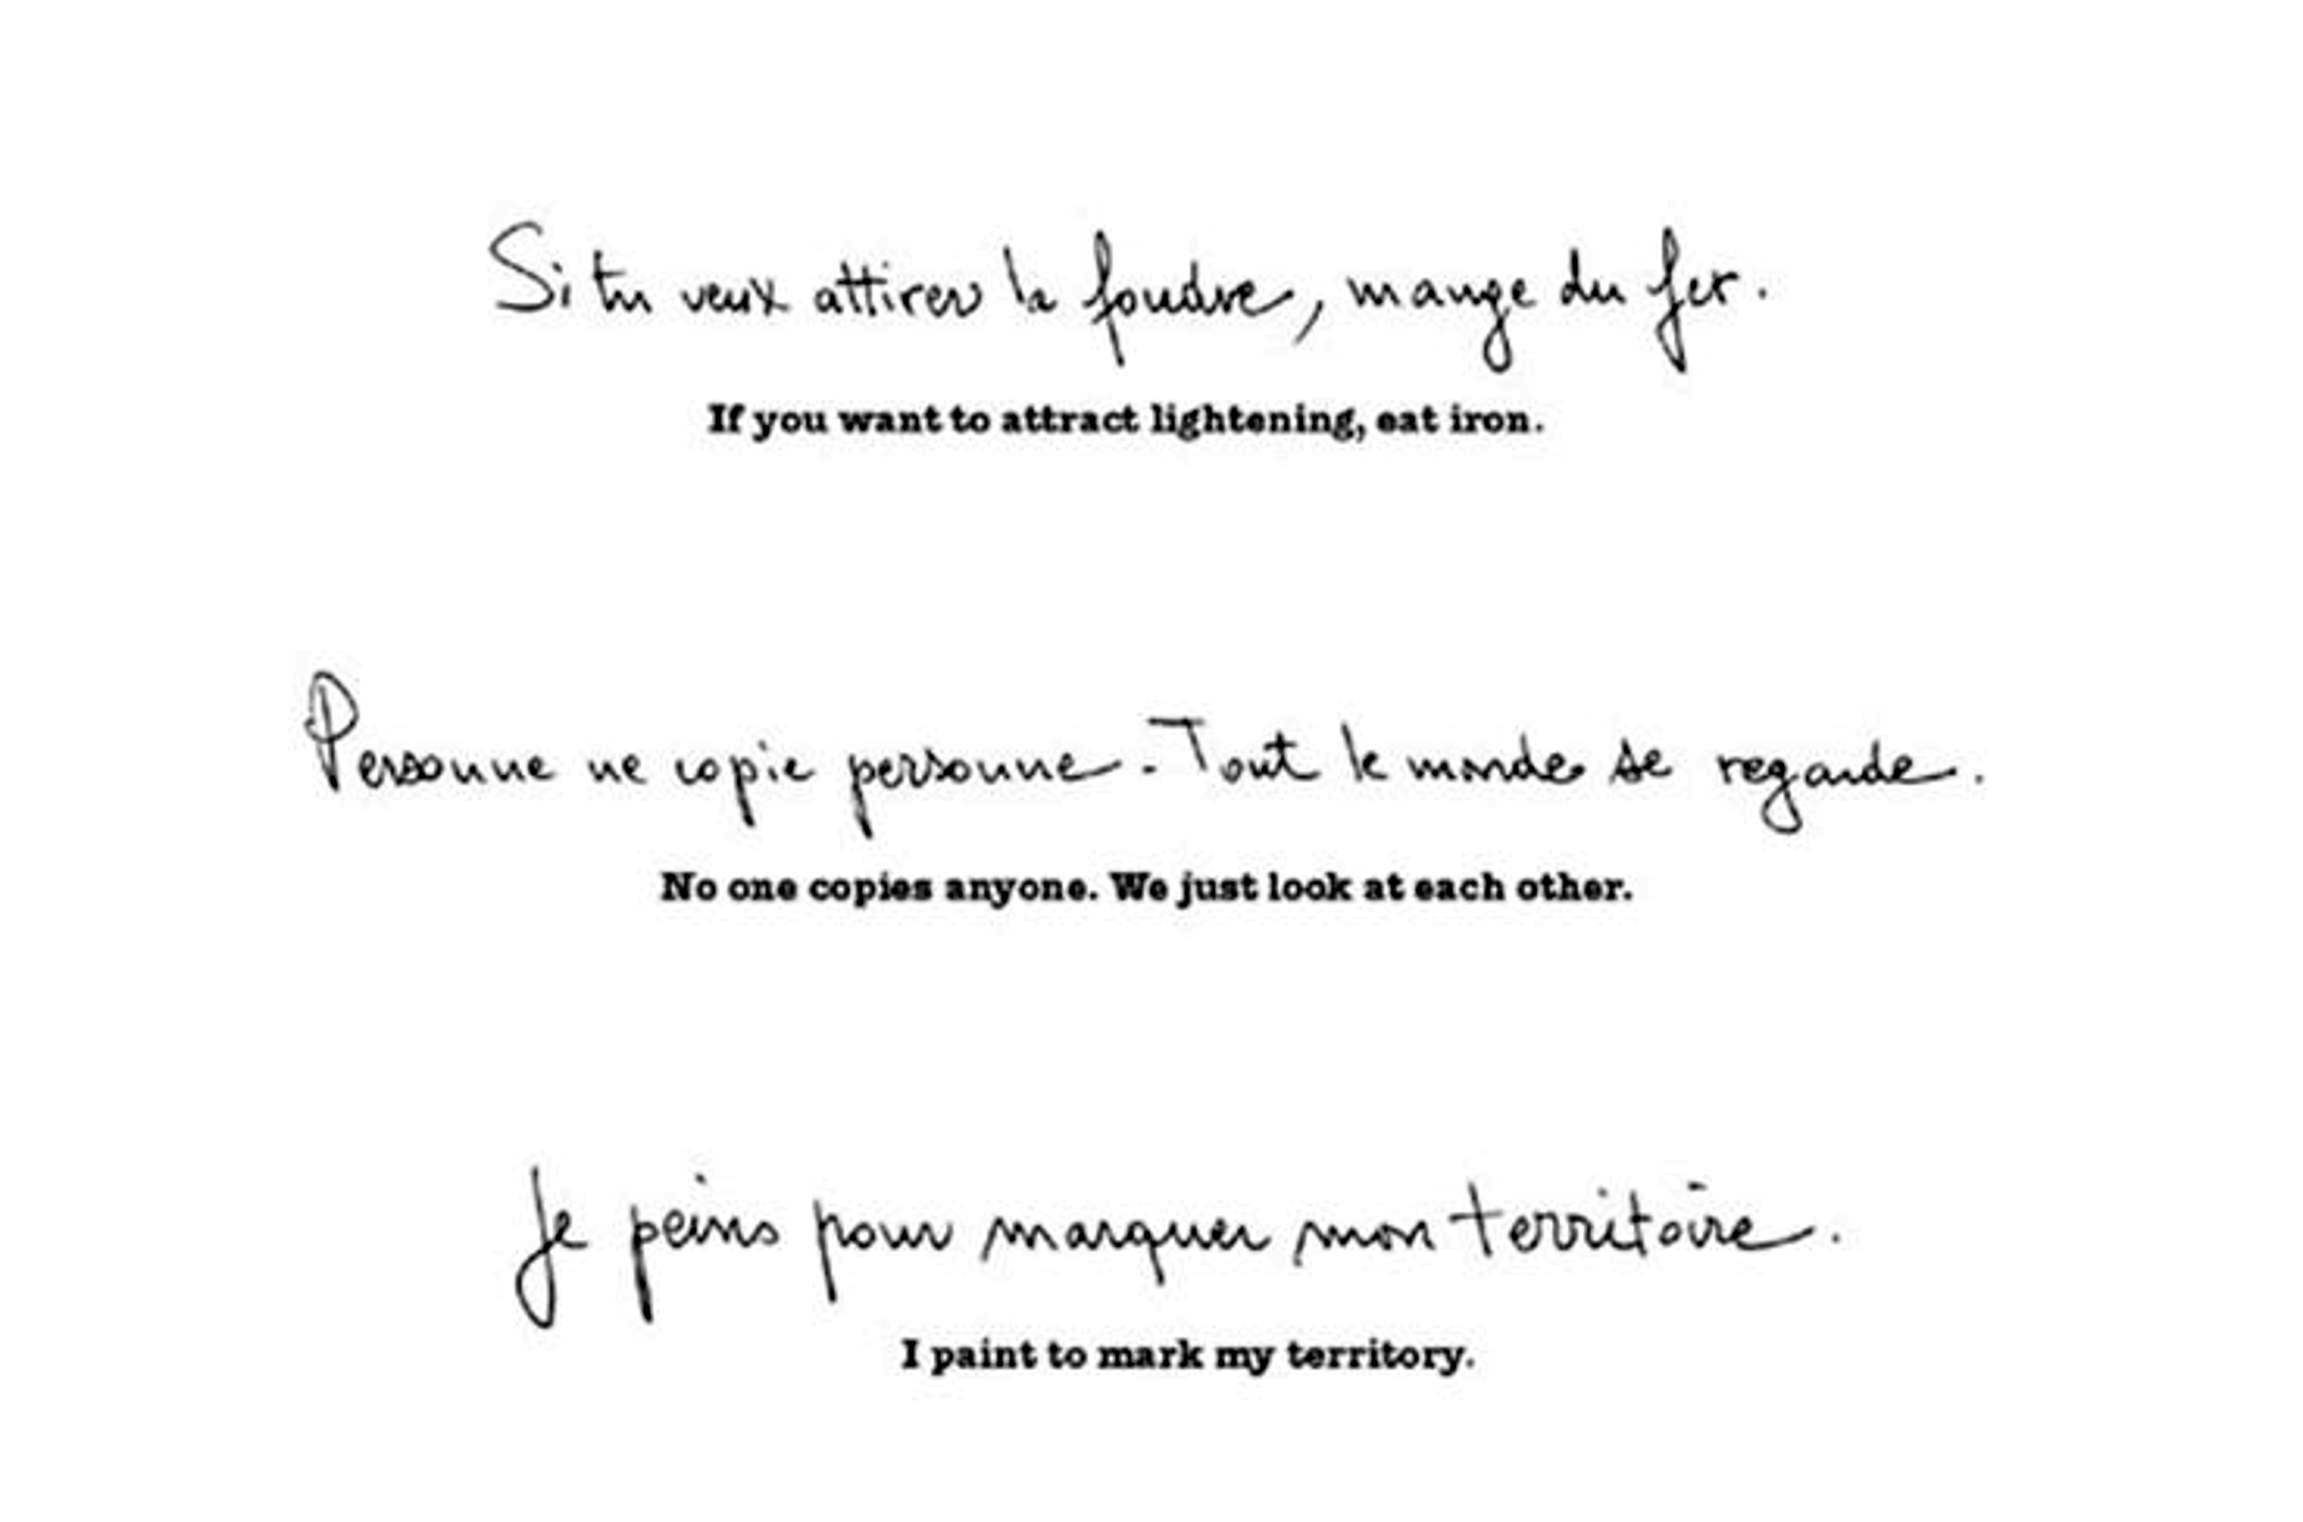 Si tu veux attirer la foudre, mange du fer.
If you want to attract lightening, eat iron.
Personne ne copie personne. Tout le monde se regarde.
No one copies anyone. We just look at each other.
Je peins pour marquer mon territoire.
I paint to mark my territory.